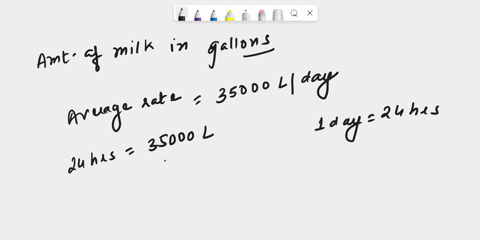 Amt. of milk in gallons
Average rate = 35000 L/day
24 hrs = 35000 L
1 day = 24 hrs